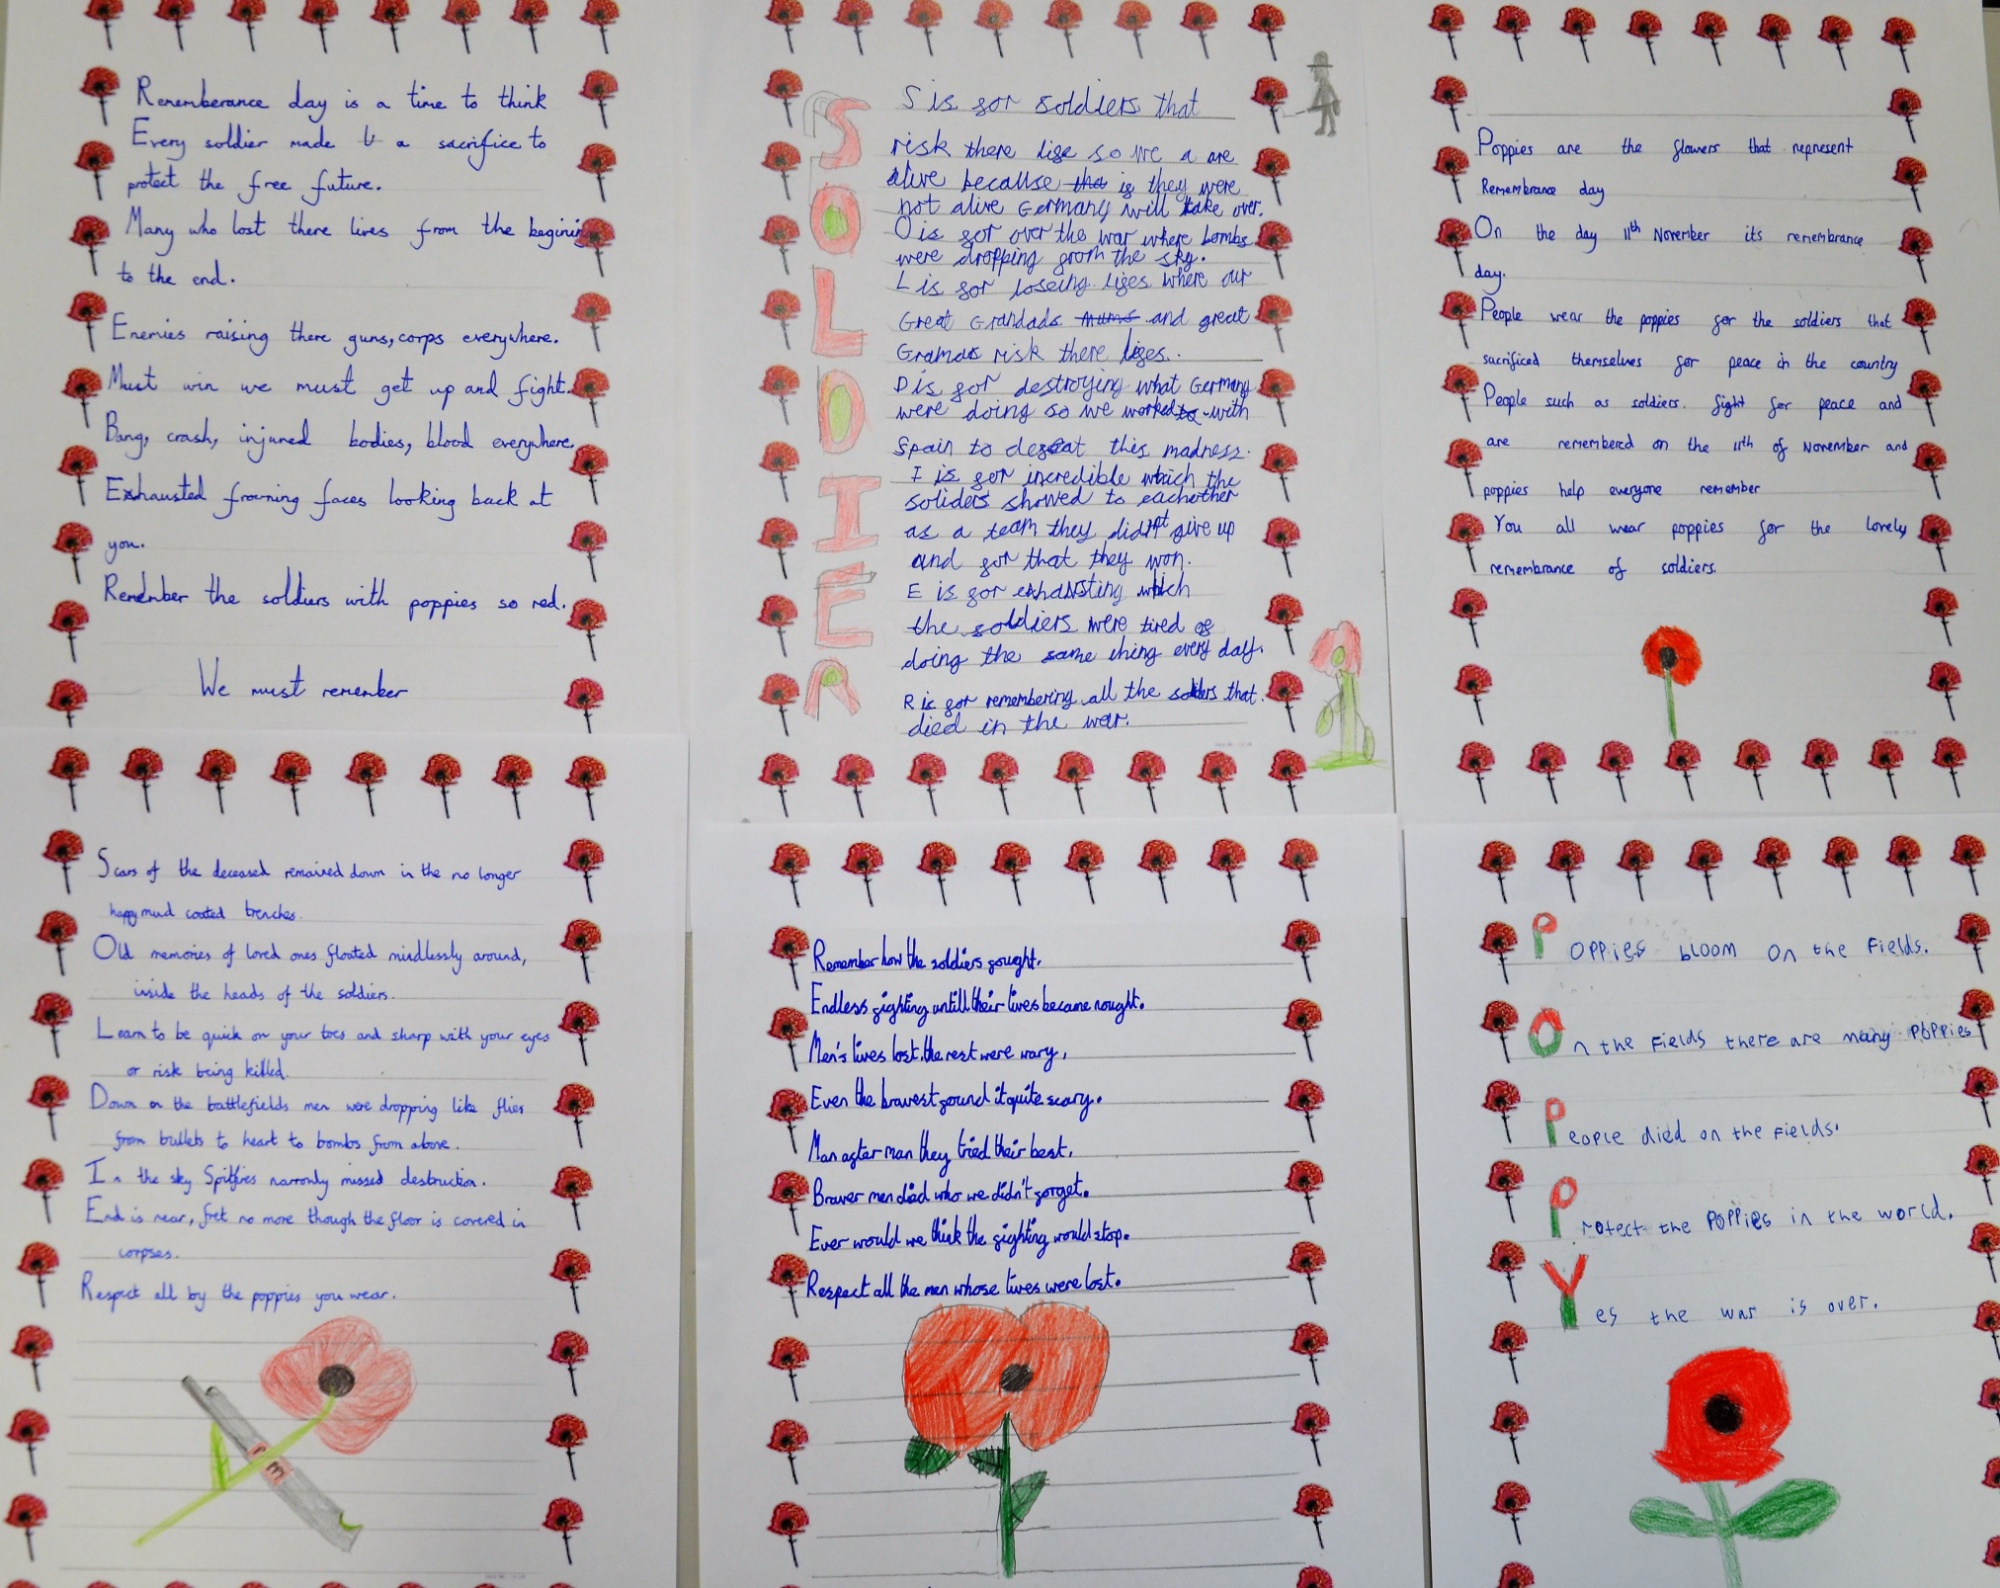 Rememberance day is a time to think
Every soldier made a sacrifice to
protect the free future.
Many who lost there lives from the begining
to the end.
Enemies raising there guns, corps everywhere.
Must win we must get up and fight.
Bang, crash, injured bodies, blood everywhere.
Exhausted frowning faces looking back at
you.
Remember the soldiers with poppies so red.
We must remember
SOLDIER
S is for soldiers that
risk there life so we a are
alive because if they were
not alive Germany will take over.
O is for over the war where bombs
were dropping from the sky.
L is for loseing lifes where our
Great Grandads and great
Gramas risk there lifes..
D is for destroying what Germany
were doing so we worked with
Spain to defeat this madness.
I is for incredible which the
soliders showed to eachother
as a team they didn't give up
and for that they won.
E is for exhausting which
the soldiers were tired of
doing the same thing every day.
R is for remembering all the soldiers that
died in the war.
Poppies are the flowers that represent
Remembrance day
On the day 11th November its remembrance
day.
People wear the poppies for the soldiers that
sacrificed themselves for peace in the country
People such as soldiers. fight for peace and
are remembered on the 11th of November and
poppies help everyone remember
You all wear poppies for the lovely
remembrance of soldiers.
Scars of the deceased remained down in the no longer
happy mud coated trenches.
Old memories of loved ones floated mindlessly around,
inside the heads of the soldiers.
Learn to be quick on your toes and sharp with your eyes
or risk being killed.
Down on the battlefields men were dropping like flies
from bullets to heart to bombs from above.
In the sky Spitfires narronly missed destruction.
End is near, fret no more though the floor is covered in
corpses.
Respect all by the poppies you wear.
Remember how the soldiers fought.
Endless fighting untill their lives became nought.
Men's lives lost, the rest were wary,
Even the bravest found it quite scary.
Man after man they tried their best,
Braver men died who we didn't forget.
Ever would we think the fighting would stop.
Respect all the men whose lives were lost.
POPPies bloom on the Fields.
On the Fields there are many POPPies
People died on the Fields.
Protect the POPPies in the world.
Yes the war is over.